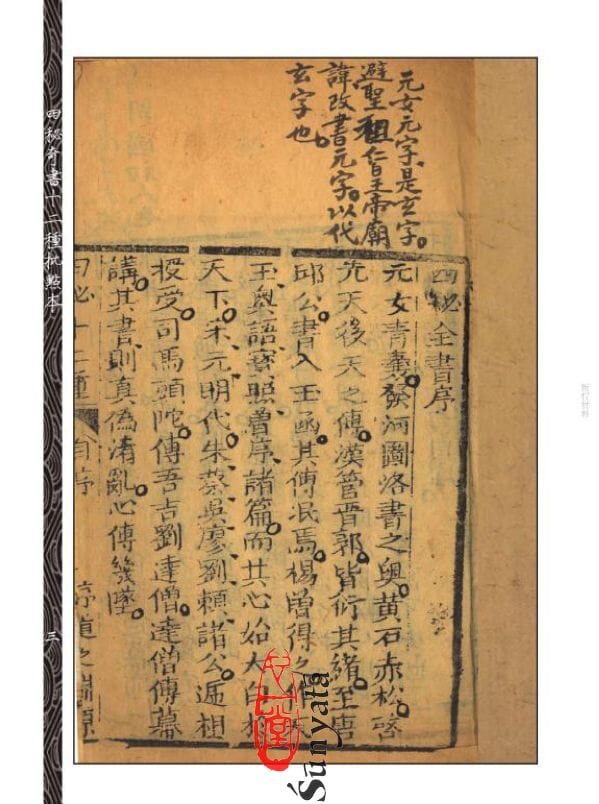 元女元字、是玄字。
避聖祖仁皇帝廟
諱改書元字。以代
玄字也。
四秘全書序
元女青囊發河圖洛書之奧黃石赤松啓
先天後天之傳漢管晉郭皆衍其緒至唐
邱公書入玉函其傳泯焉楊曾得之作
玉奧語寶照曾序諸篇而其心始大白於
天下宋元明代朱蔡吳廖劉賴諸公遞祖
授受司馬頭陀傳吾吉劉達僧達僧傳幕
講其書則真偽淆亂心傳幾墜
四秘十二種 自序
四秘奇書十二種批點本
三
心一堂
Śūnyatā